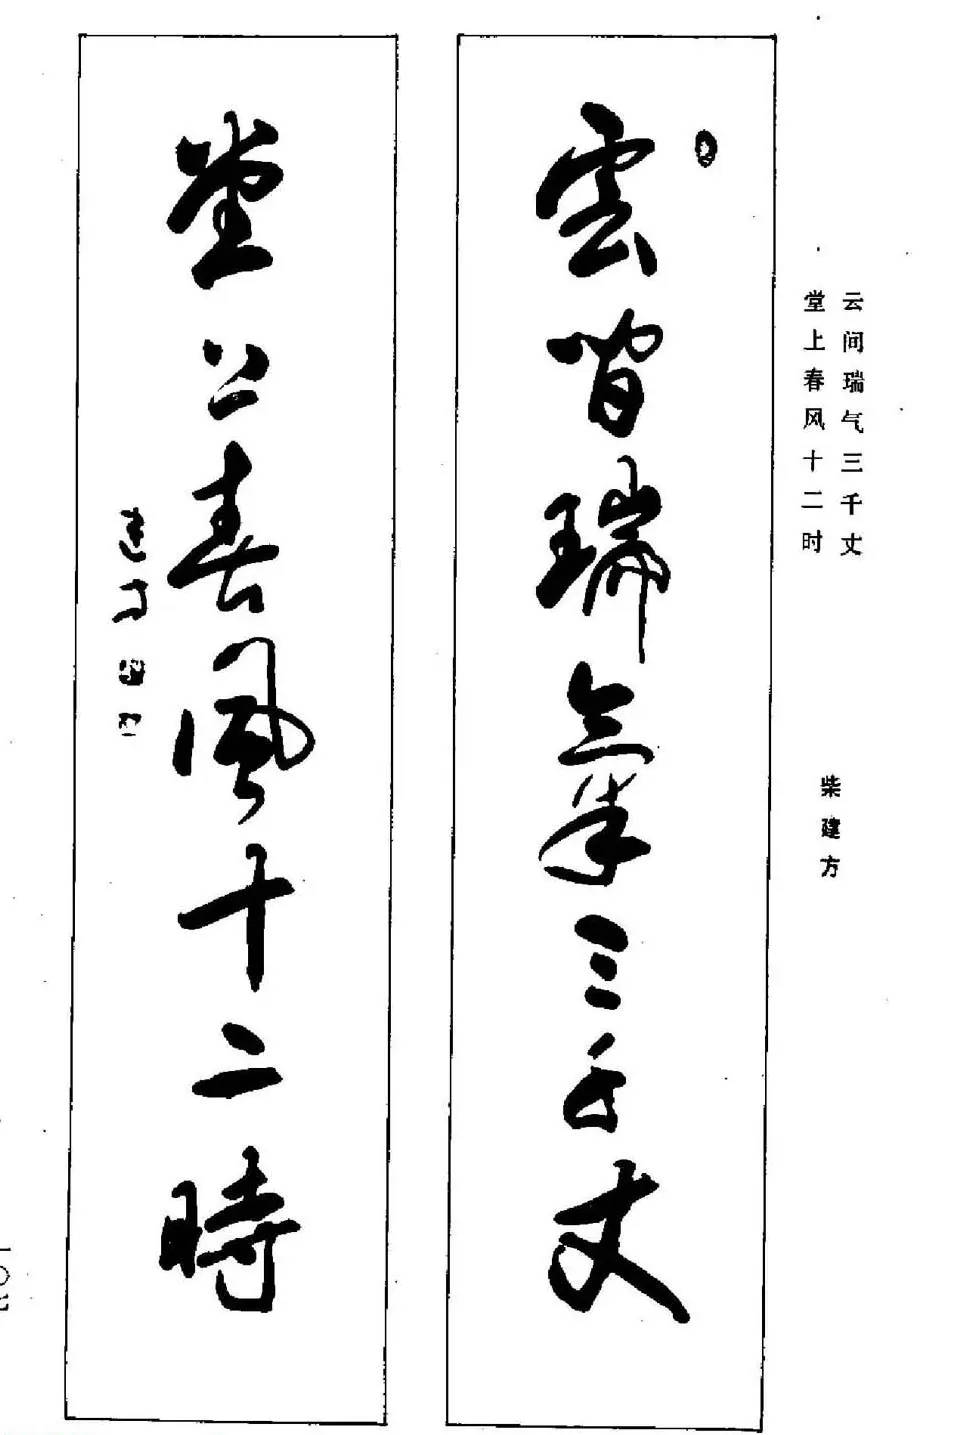 云间瑞气三千丈
堂上春风十二时
柴建方
雲間瑞氣三千丈
堂上春風十二時
建方